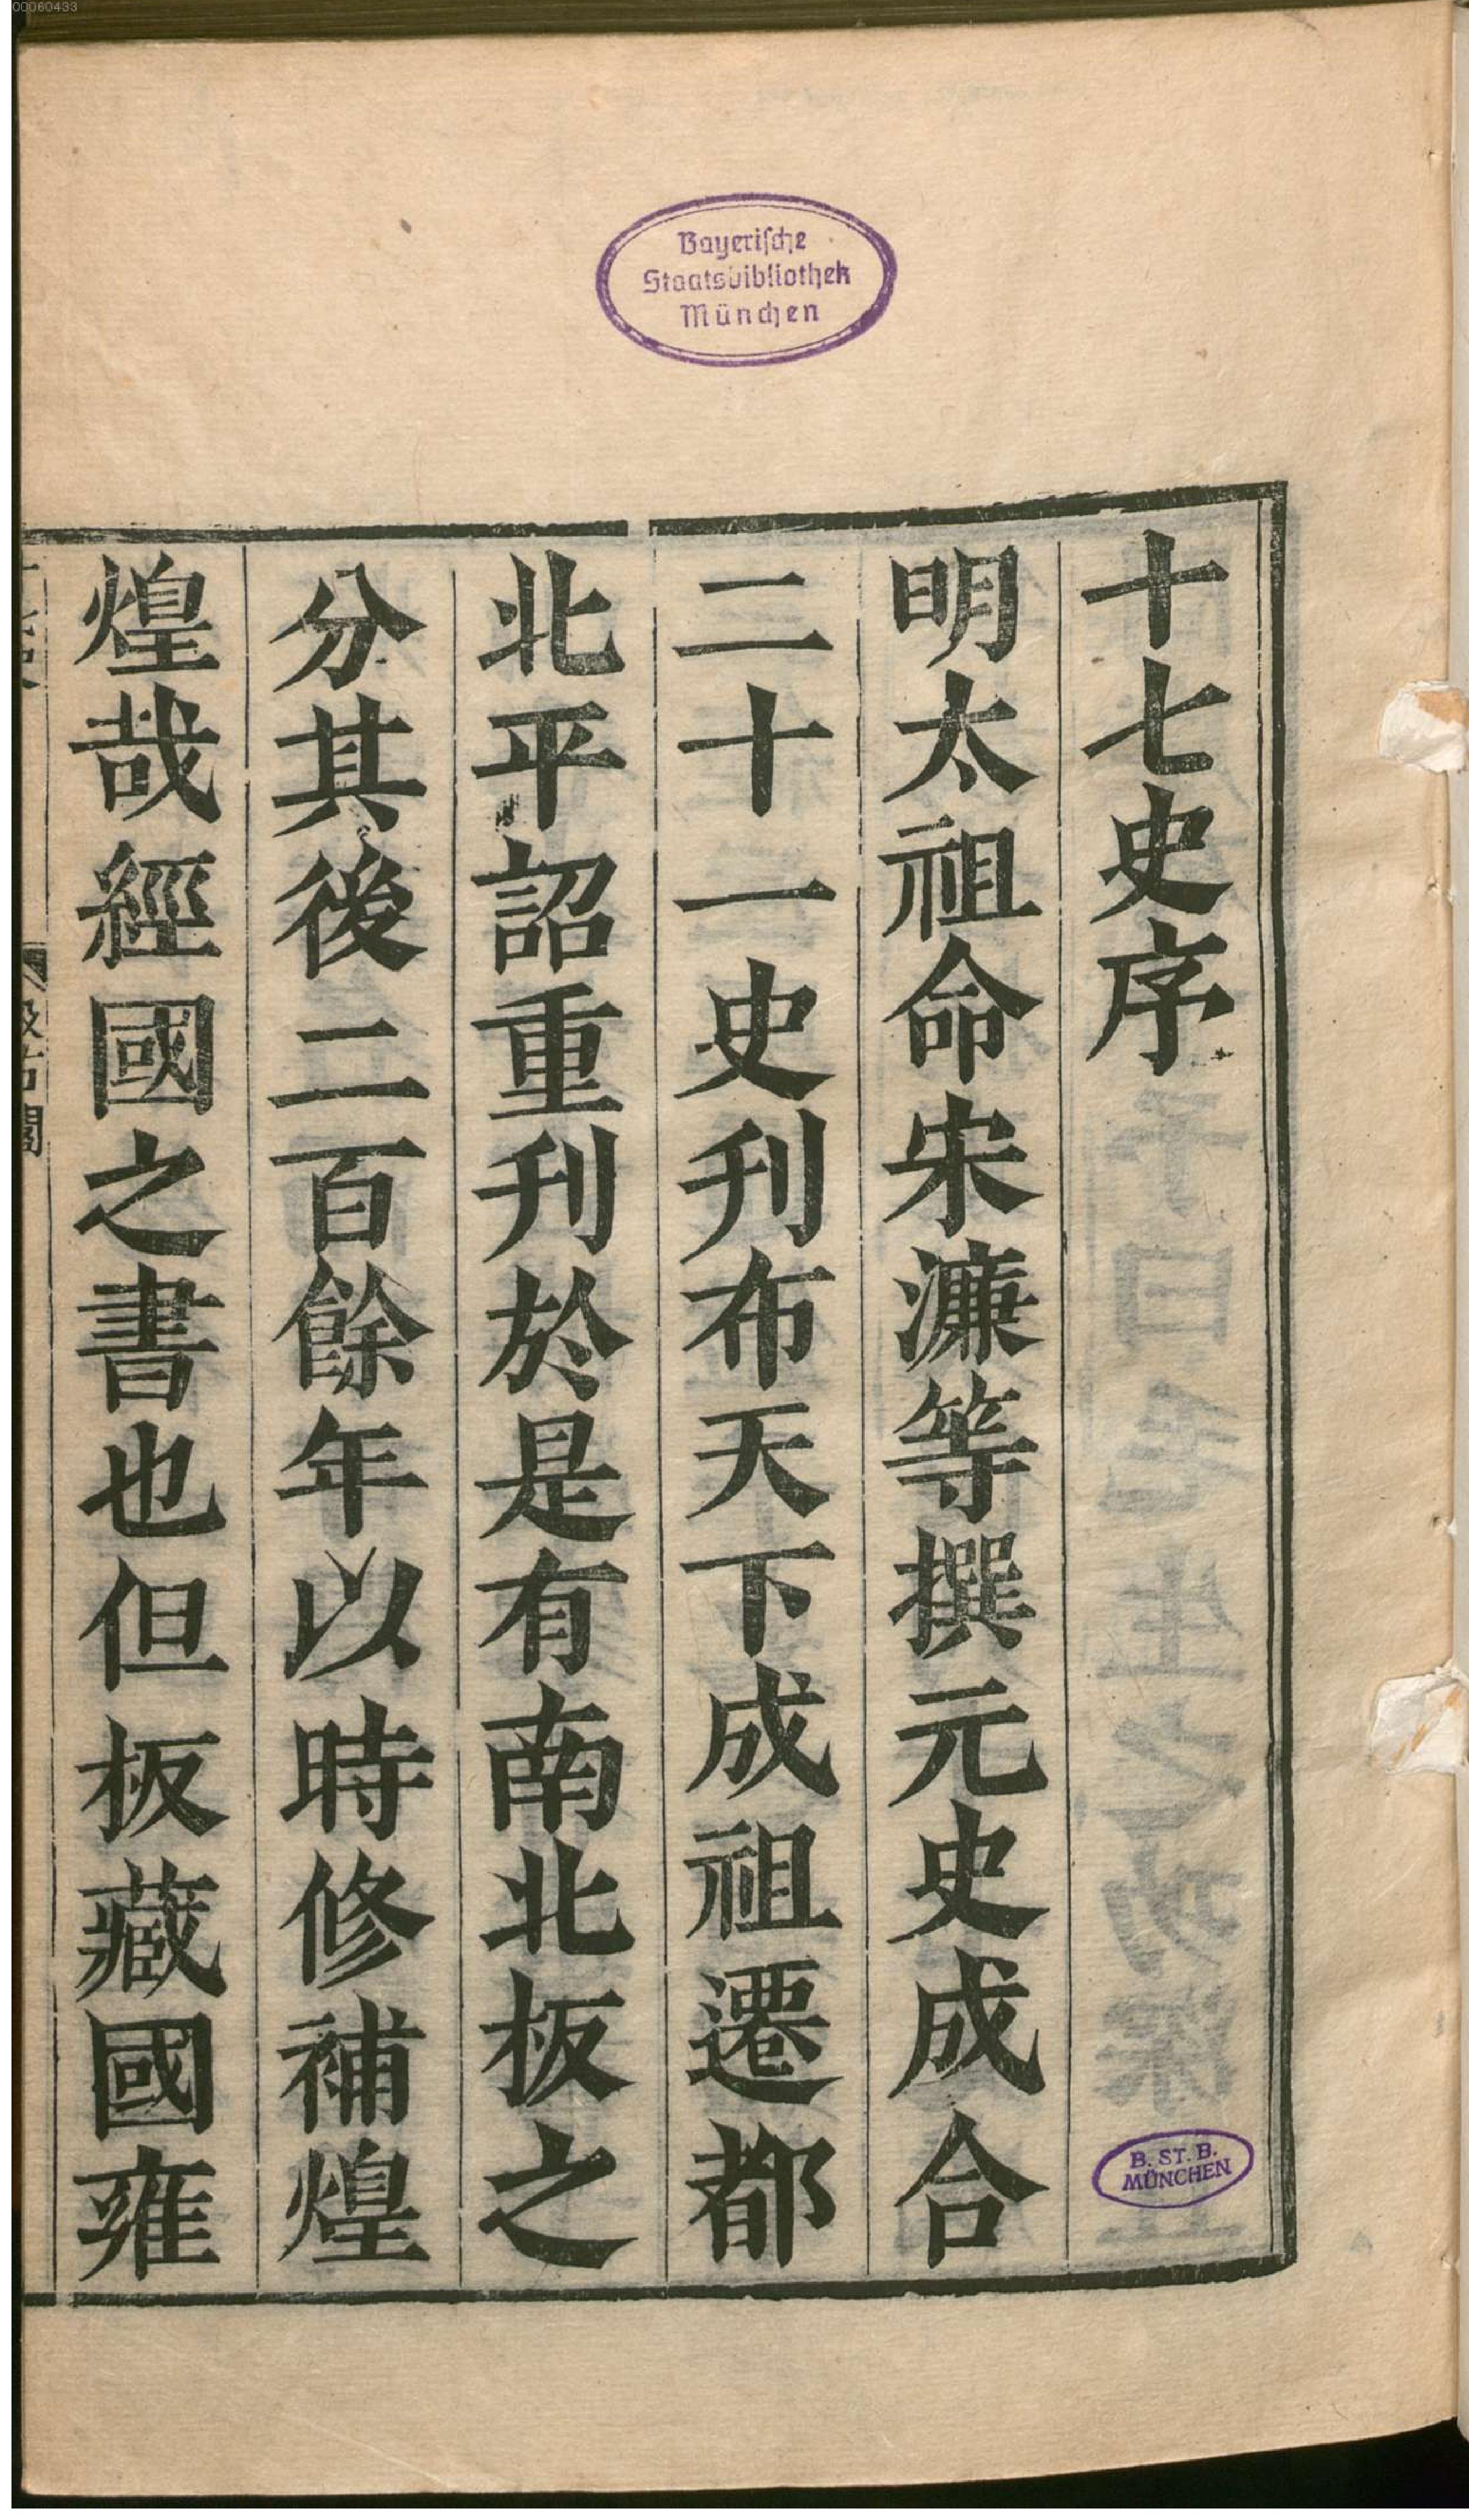 00060433
Bayerische
Staatsbibliothek
München
十七史序
明太祖命宋濂等撰元史成合
二十一史刊布天下成祖遷都
北平詔重刊於是有南北板之
分其後二百餘年以時修補煌
煌哉經國之書也但板藏國雍
B. ST. B.
MÜNCHEN